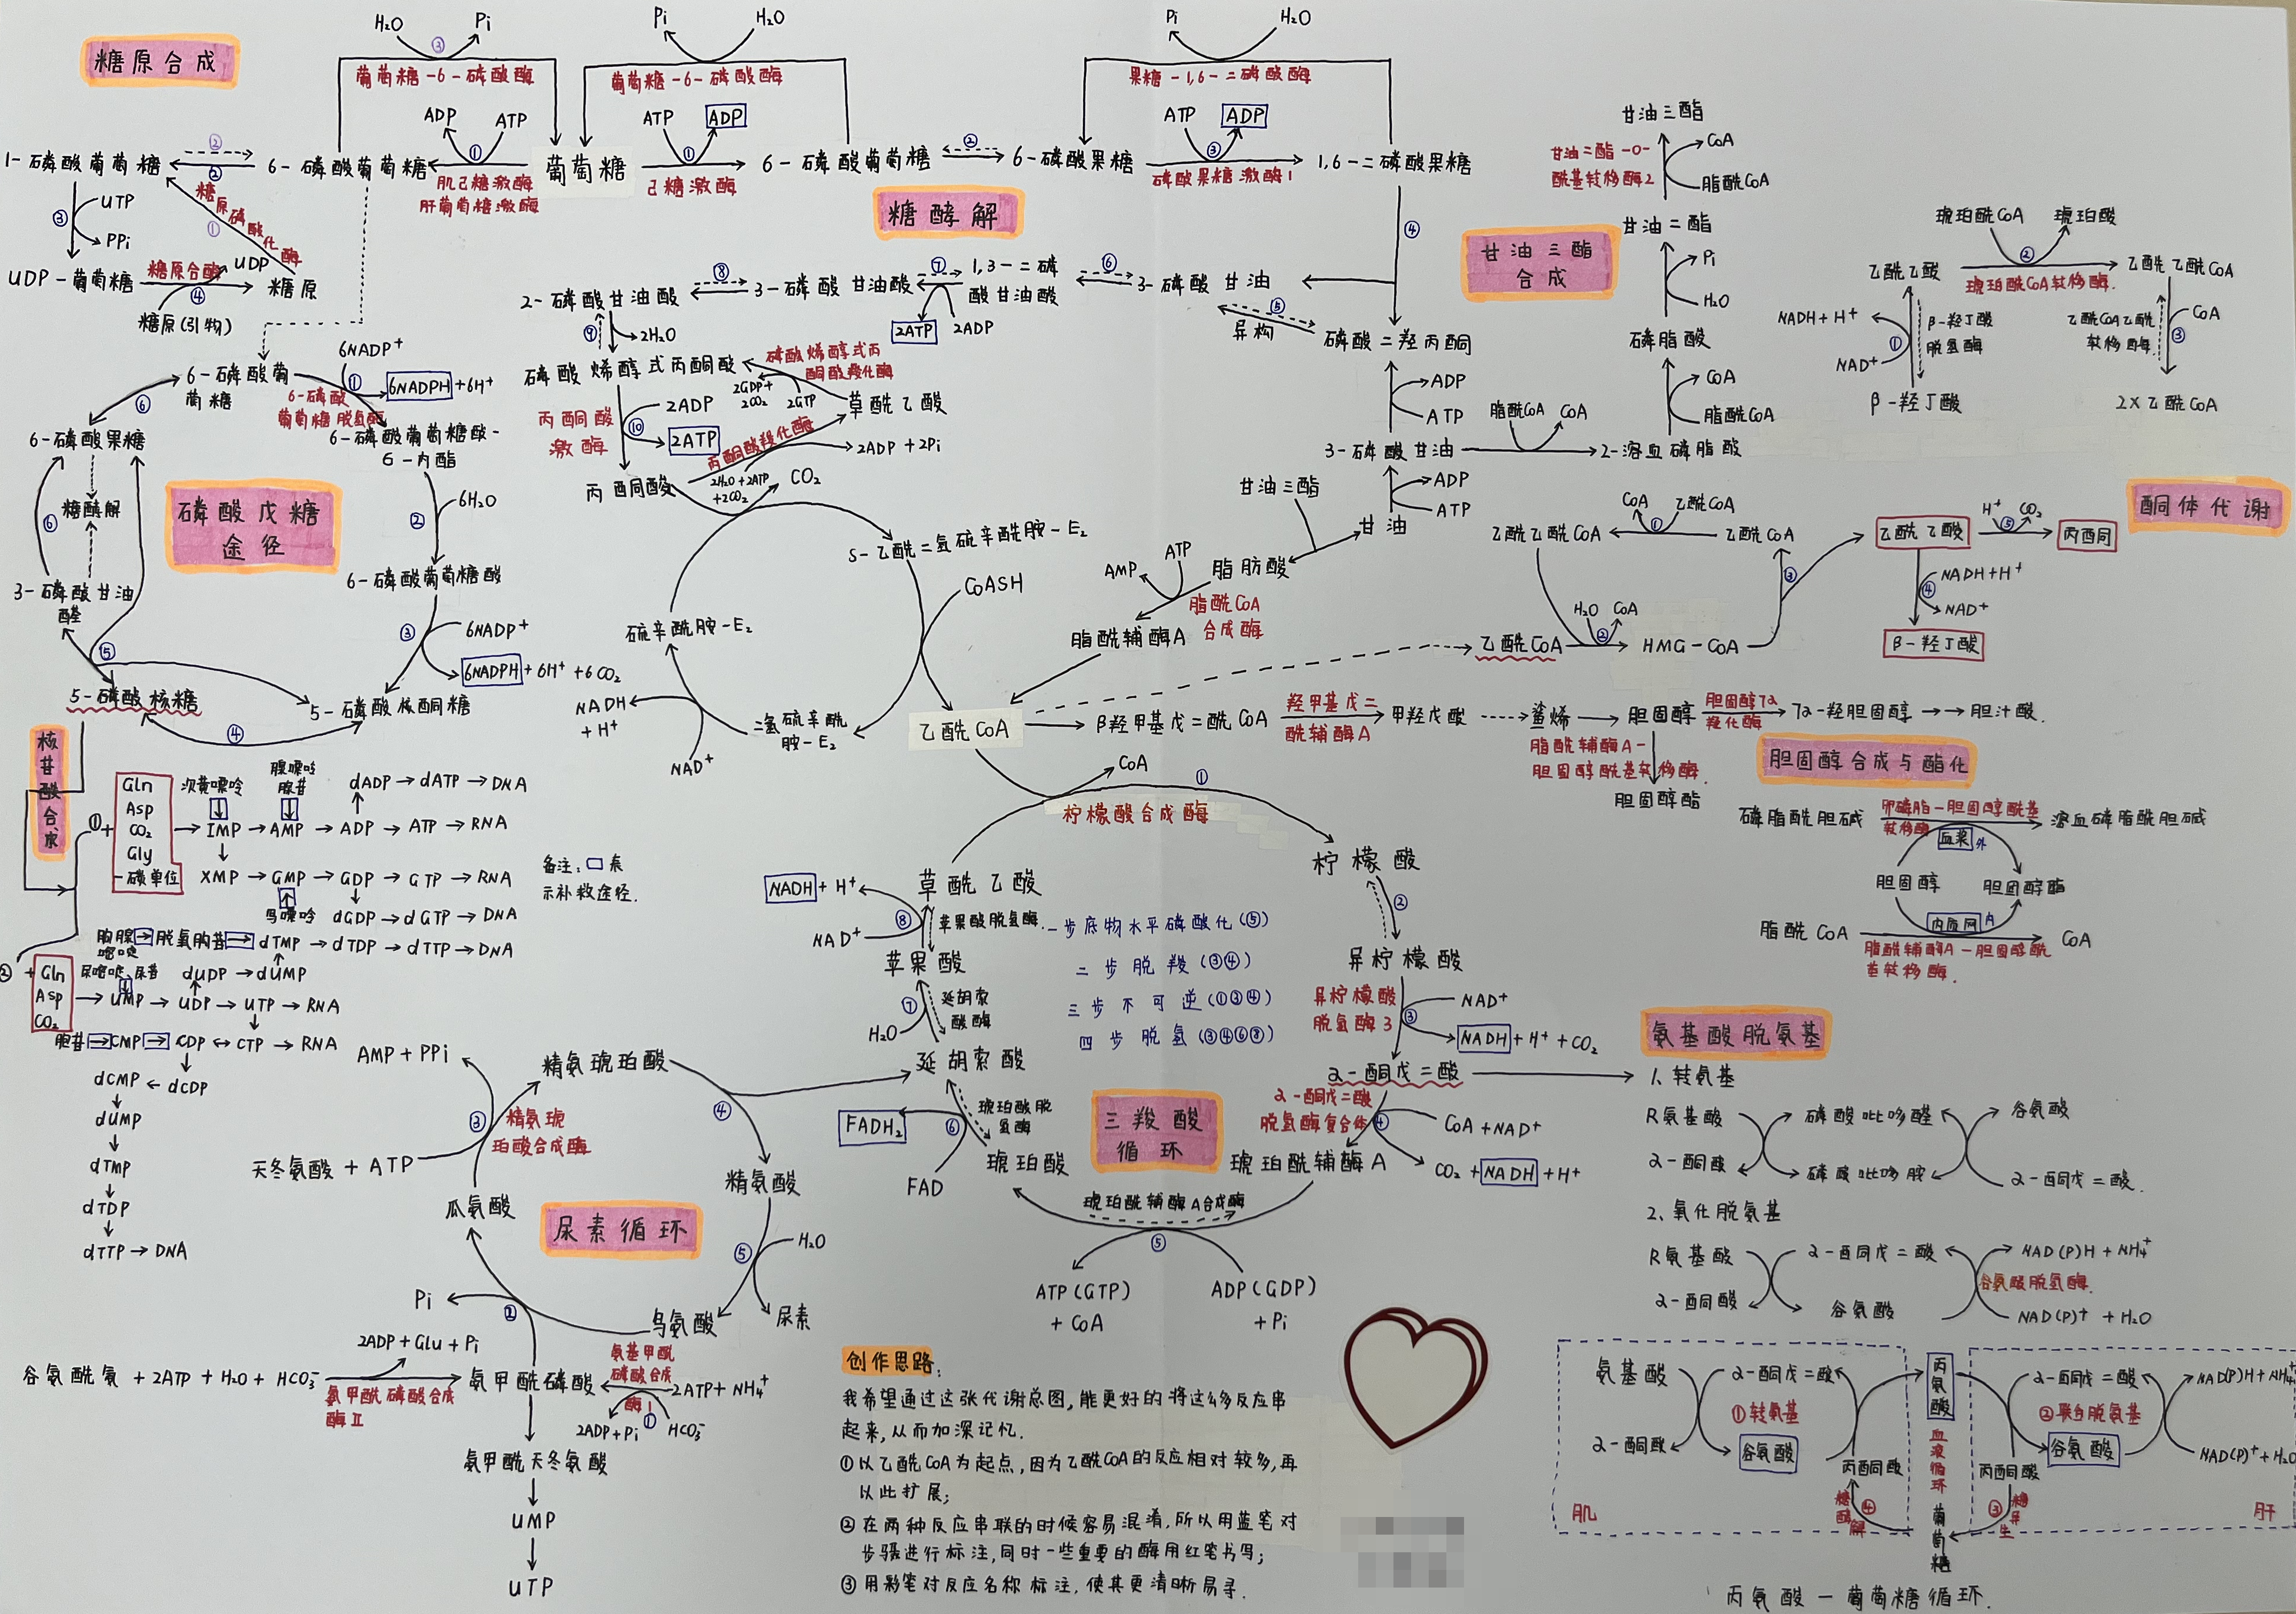 糖原合成
H₂O
Pi
③
葡萄糖-6-磷酸酶
ADP
ATP
1-磷酸葡萄糖
②
②
6-磷酸葡萄糖
①
肌己糖激酶
肝葡萄糖激酶
葡萄糖
③
UTP
PPi
糖原磷酸化酶
①
UDP-葡萄糖
糖原合酶
UDP
④
糖原
糖原(引物)
Pi
H₂O
葡萄糖-6-磷酸酶
ATP
ADP
①
己糖激酶
6-磷酸葡萄糖
②
6-磷酸果糖
Pi
H₂O
果糖-1,6-二磷酸酶
ATP
ADP
③
磷酸果糖激酶1
1,6-二磷酸果糖
糖酵解
④
⑤
异构
磷酸二羟丙酮
3-磷酸甘油
⑥
1,3-二磷
酸甘油酸
⑦
2ATP
2ADP
3-磷酸甘油酸
⑧
2-磷酸甘油酸
⑨
2H₂O
磷酸烯醇式丙酮酸
磷酸烯醇式丙
酮酸羧化酶
2GDP+
2CO₂
2GTP
草酰乙酸
丙酮酸
激酶
2ADP
⑩
2ATP
丙酮酸羧化酶
2ADP+2Pi
2H₂O+2ATP
+2CO₂
丙酮酸
CO₂
S-乙酰二氢硫辛酰胺-E₂
CoASH
硫辛酰胺-E₂
NADH
+H⁺
NAD⁺
二氢硫辛酰
胺-E₂
乙酰CoA
甘油三酯
合成
甘油三酯
甘油二酯-O-
酰基转移酶2
CoA
脂酰CoA
甘油二酯
Pi
H₂O
磷脂酸
CoA
脂酰CoA
ADP
ATP
3-磷酸甘油
脂酰CoA
CoA
2-溶血磷脂酸
ADP
ATP
甘油
甘油三酯
脂肪酸
ATP
AMP
脂酰CoA
合成酶
脂酰辅酶A
琥珀酰CoA
琥珀酸
②
乙酰乙酸
琥珀酰CoA转移酶.
乙酰乙酰CoA
NADH+H⁺
①
NAD⁺
β-羟丁酸
脱氢酶
乙酰CoA乙酰
转移酶
③
CoA
β-羟丁酸
2×乙酰CoA
酮体代谢
乙酰乙酰CoA
CoA
①
乙酰CoA
乙酰CoA
乙酰乙酸
H⁺
⑤
CO₂
丙酮
③
④
NADH+H⁺
NAD⁺
β-羟丁酸
乙酰CoA
H₂O
CoA
②
HMG-CoA
β羟甲基戊二酰CoA
羟甲基戊二
酰辅酶A
甲羟戊酸
鲨烯
胆固醇
胆固醇7α
羟化酶
7α-羟胆固醇
胆汁酸.
脂酰辅酶A-
胆固醇酰基转移酶.
胆固醇酯
胆固醇合成与酯化
磷脂酰胆碱
卵磷脂-胆固醇酰基
转移酶
溶血磷脂酰胆碱
血浆
外
胆固醇
胆固醇酯
内质网
内
脂酰CoA
CoA
脂酰辅酶A-胆固醇酰
基转移酶.
6-磷酸葡
萄糖
6NADP⁺
①
6NADPH+6H⁺
6-磷酸
葡萄糖脱氢酶
6-磷酸葡萄糖酸-
6-内酯
⑥
6-磷酸果糖
糖酵解
⑥
3-磷酸甘油
醛
磷酸戊糖
途径
②
6H₂O
6-磷酸葡萄糖酸
③
6NADP⁺
6NADPH+6H⁺+6CO₂
⑤
5-磷酸核糖
5-磷酸核酮糖
④
核苷酸合成
①+
Gln
Asp
CO₂
Gly
一碳单位
次黄嘌呤
腺嘌呤
腺苷
dADP→dATP→DNA
IMP→AMP→ADP→ATP→RNA
XMP→GMP→GDP→GTP→RNA
鸟嘌呤
dGDP→dGTP→DNA
备注:□表
示补救途径.
胸腺
嘧啶
脱氧胸苷
dTMP→dTDP→dTTP→DNA
②+
Gln
Asp
CO₂
尿嘧啶、尿苷
dUDP→dUMP
UMP→UDP→UTP→RNA
胞苷→CMP→CDP↔CTP→RNA
dCMP←dCDP
dUMP
dTMP
dTDP
dTTP→DNA
CoA
①
柠檬酸合成酶
柠檬酸
②
异柠檬酸
异柠檬酸
脱氢酶3
NAD⁺
③
NADH+H⁺+CO₂
α-酮戊二酸
α-酮戊二酸
脱氢酶复合体
④
CoA+NAD⁺
CO₂+NADH+H⁺
琥珀酰辅酶A
琥珀酰辅酶A合成酶
⑤
ATP(GTP)
+CoA
ADP(GDP)
+Pi
琥珀酸
琥珀酸脱
氢酶
⑥
FADH₂
FAD
延胡索酸
⑦
H₂O
延胡索
酸酶
苹果酸
苹果酸脱氢酶.
⑧
NADH+H⁺
NAD⁺
草酰乙酸
一步底物水平磷酸化(⑤)
二步脱羧(③④)
三步不可逆(①③④)
四步脱氢(③④⑥⑧)
三羧酸
循环
AMP+PPi
精氨琥珀酸
③
精氨琥
珀酸合成酶
天冬氨酸+ATP
④
精氨酸
瓜氨酸
尿素循环
⑤
H₂O
尿素
鸟氨酸
②
Pi
2ADP+Glu+Pi
谷氨酰氨+2ATP+H₂O+HCO₃⁻
氨甲酰磷酸合成
酶Ⅱ
氨甲酰磷酸
氨基甲酰
磷酸合成
酶Ⅰ
2ATP+NH₄⁺
2ADP+Pi
①
HCO₃⁻
氨甲酰天冬氨酸
UMP
UTP
创作思路:
我希望通过这张代谢总图,能更好的将这么多反应串
起来,从而加深记忆.
①以乙酰CoA为起点,因为乙酰CoA的反应相对较多,再
以此扩展;
②在两种反应串联的时候容易混淆,所以用蓝笔对
步骤进行标注,同时一些重要的酶用红笔书写;
③用彩笔对反应名称标注,使其更清晰易寻.
氨基酸脱氨基
1、转氨基
R氨基酸
磷酸吡哆醛
谷氨酸
α-酮酸
磷酸吡哆胺
α-酮戊二酸.
2、氧化脱氨基
R氨基酸
α-酮戊二酸
NAD(P)H+NH₄⁺
谷氨酸脱氢酶.
α-酮酸
谷氨酸
NAD(P)⁺+H₂O
氨基酸
α-酮戊二酸
①转氨基
α-酮酸
谷氨酸
丙酮酸
糖酵解
④
肌
丙氨酸
血液循环
葡萄糖
α-酮戊二酸
NAD(P)H+NH₄⁺
②联合脱氨基
丙酮酸
谷氨酸
NAD(P)⁺+H₂O
③
糖异生
肝
丙氨酸-葡萄糖循环.